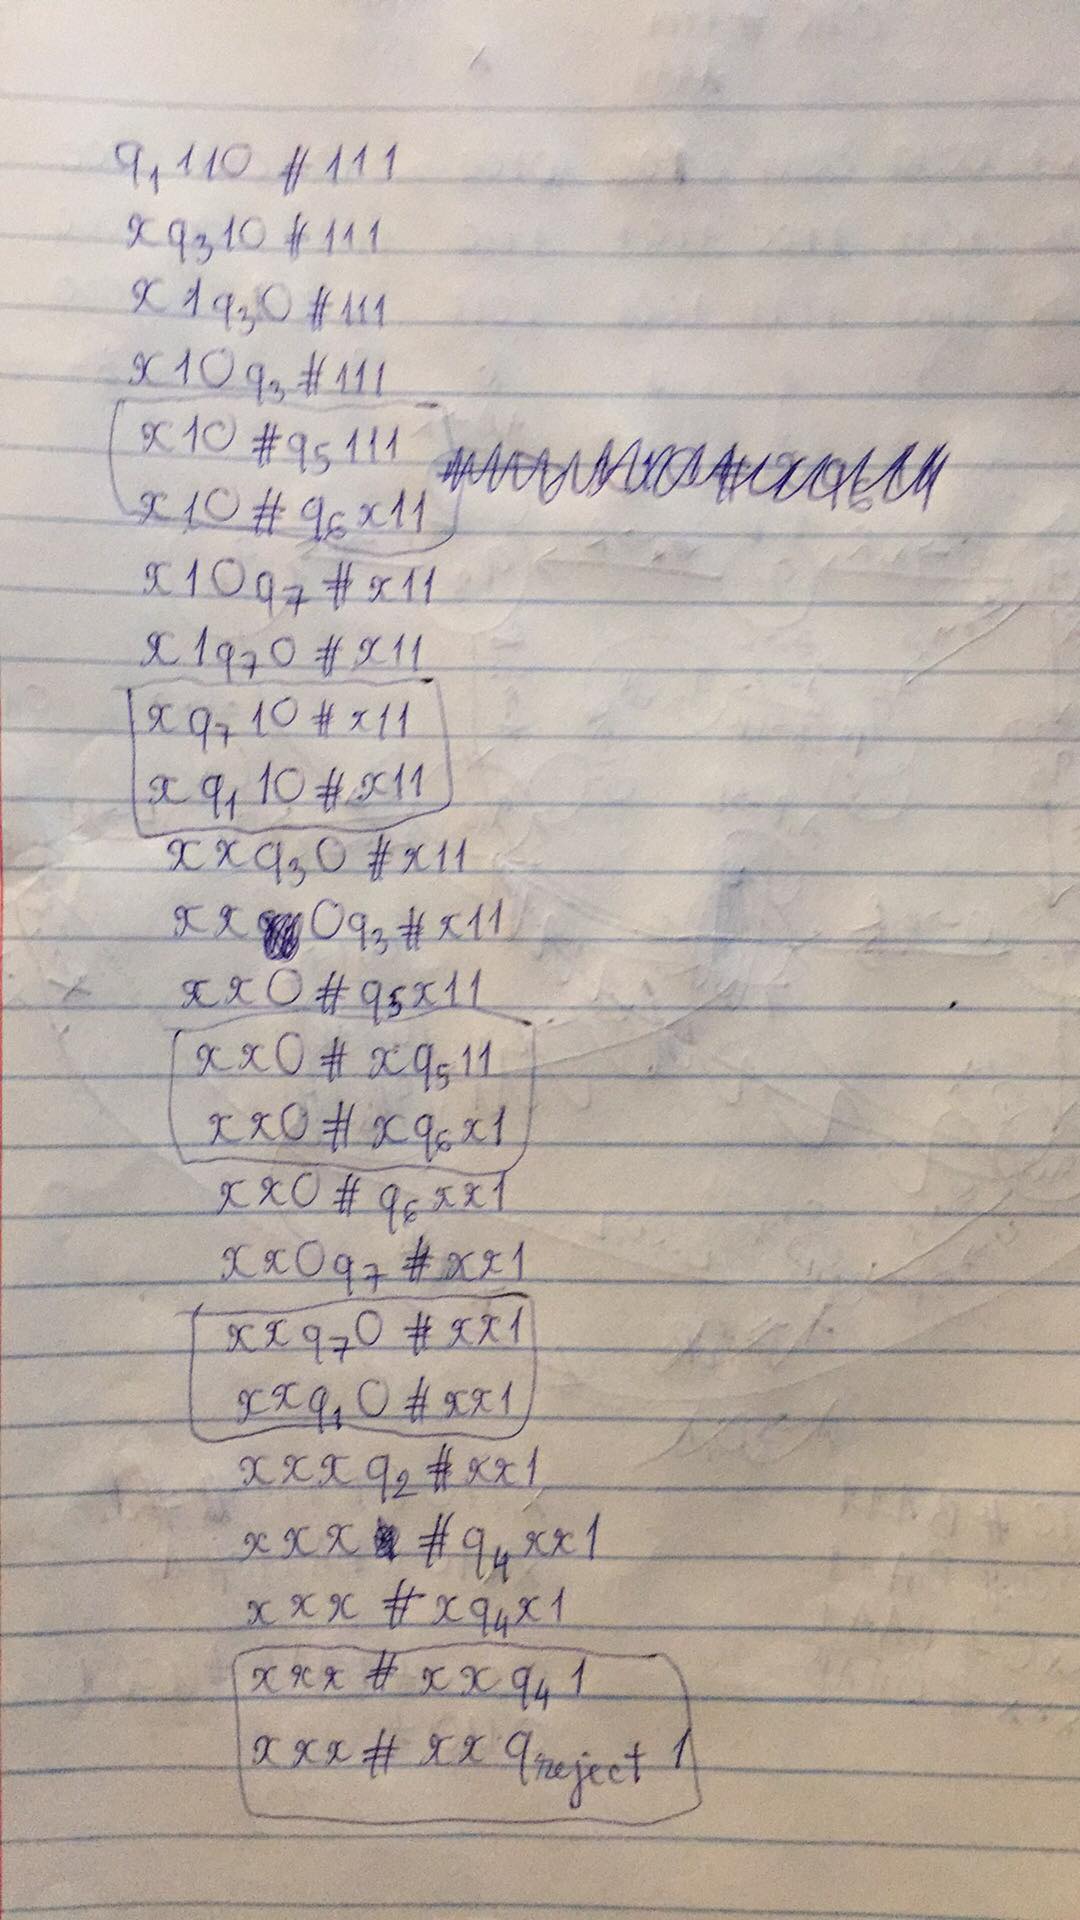 q₁110 #111
xq₃10 #111
x1q₃0 #111
x10q₃#111
x10 #q₅111
x10 # q₆x11
x10q₇ #x11
x1q₇0 #x11
xq₇10#x11
xq₁10#x11
xxq₃0 #x11
xx 0q₃#x11
xx0#q₅x11
xx0# xq₅11
xx0# xq₆x1
xx0# q₆xx1
xx0q₇ #xx1
xxq₇0 #xx1
xxq₁0 #xx1
xxxq₂#xx1
xxx #q₄xx1
xxx #xq₄x1
xxx # xxq₄1
xxx# xx qreject 1